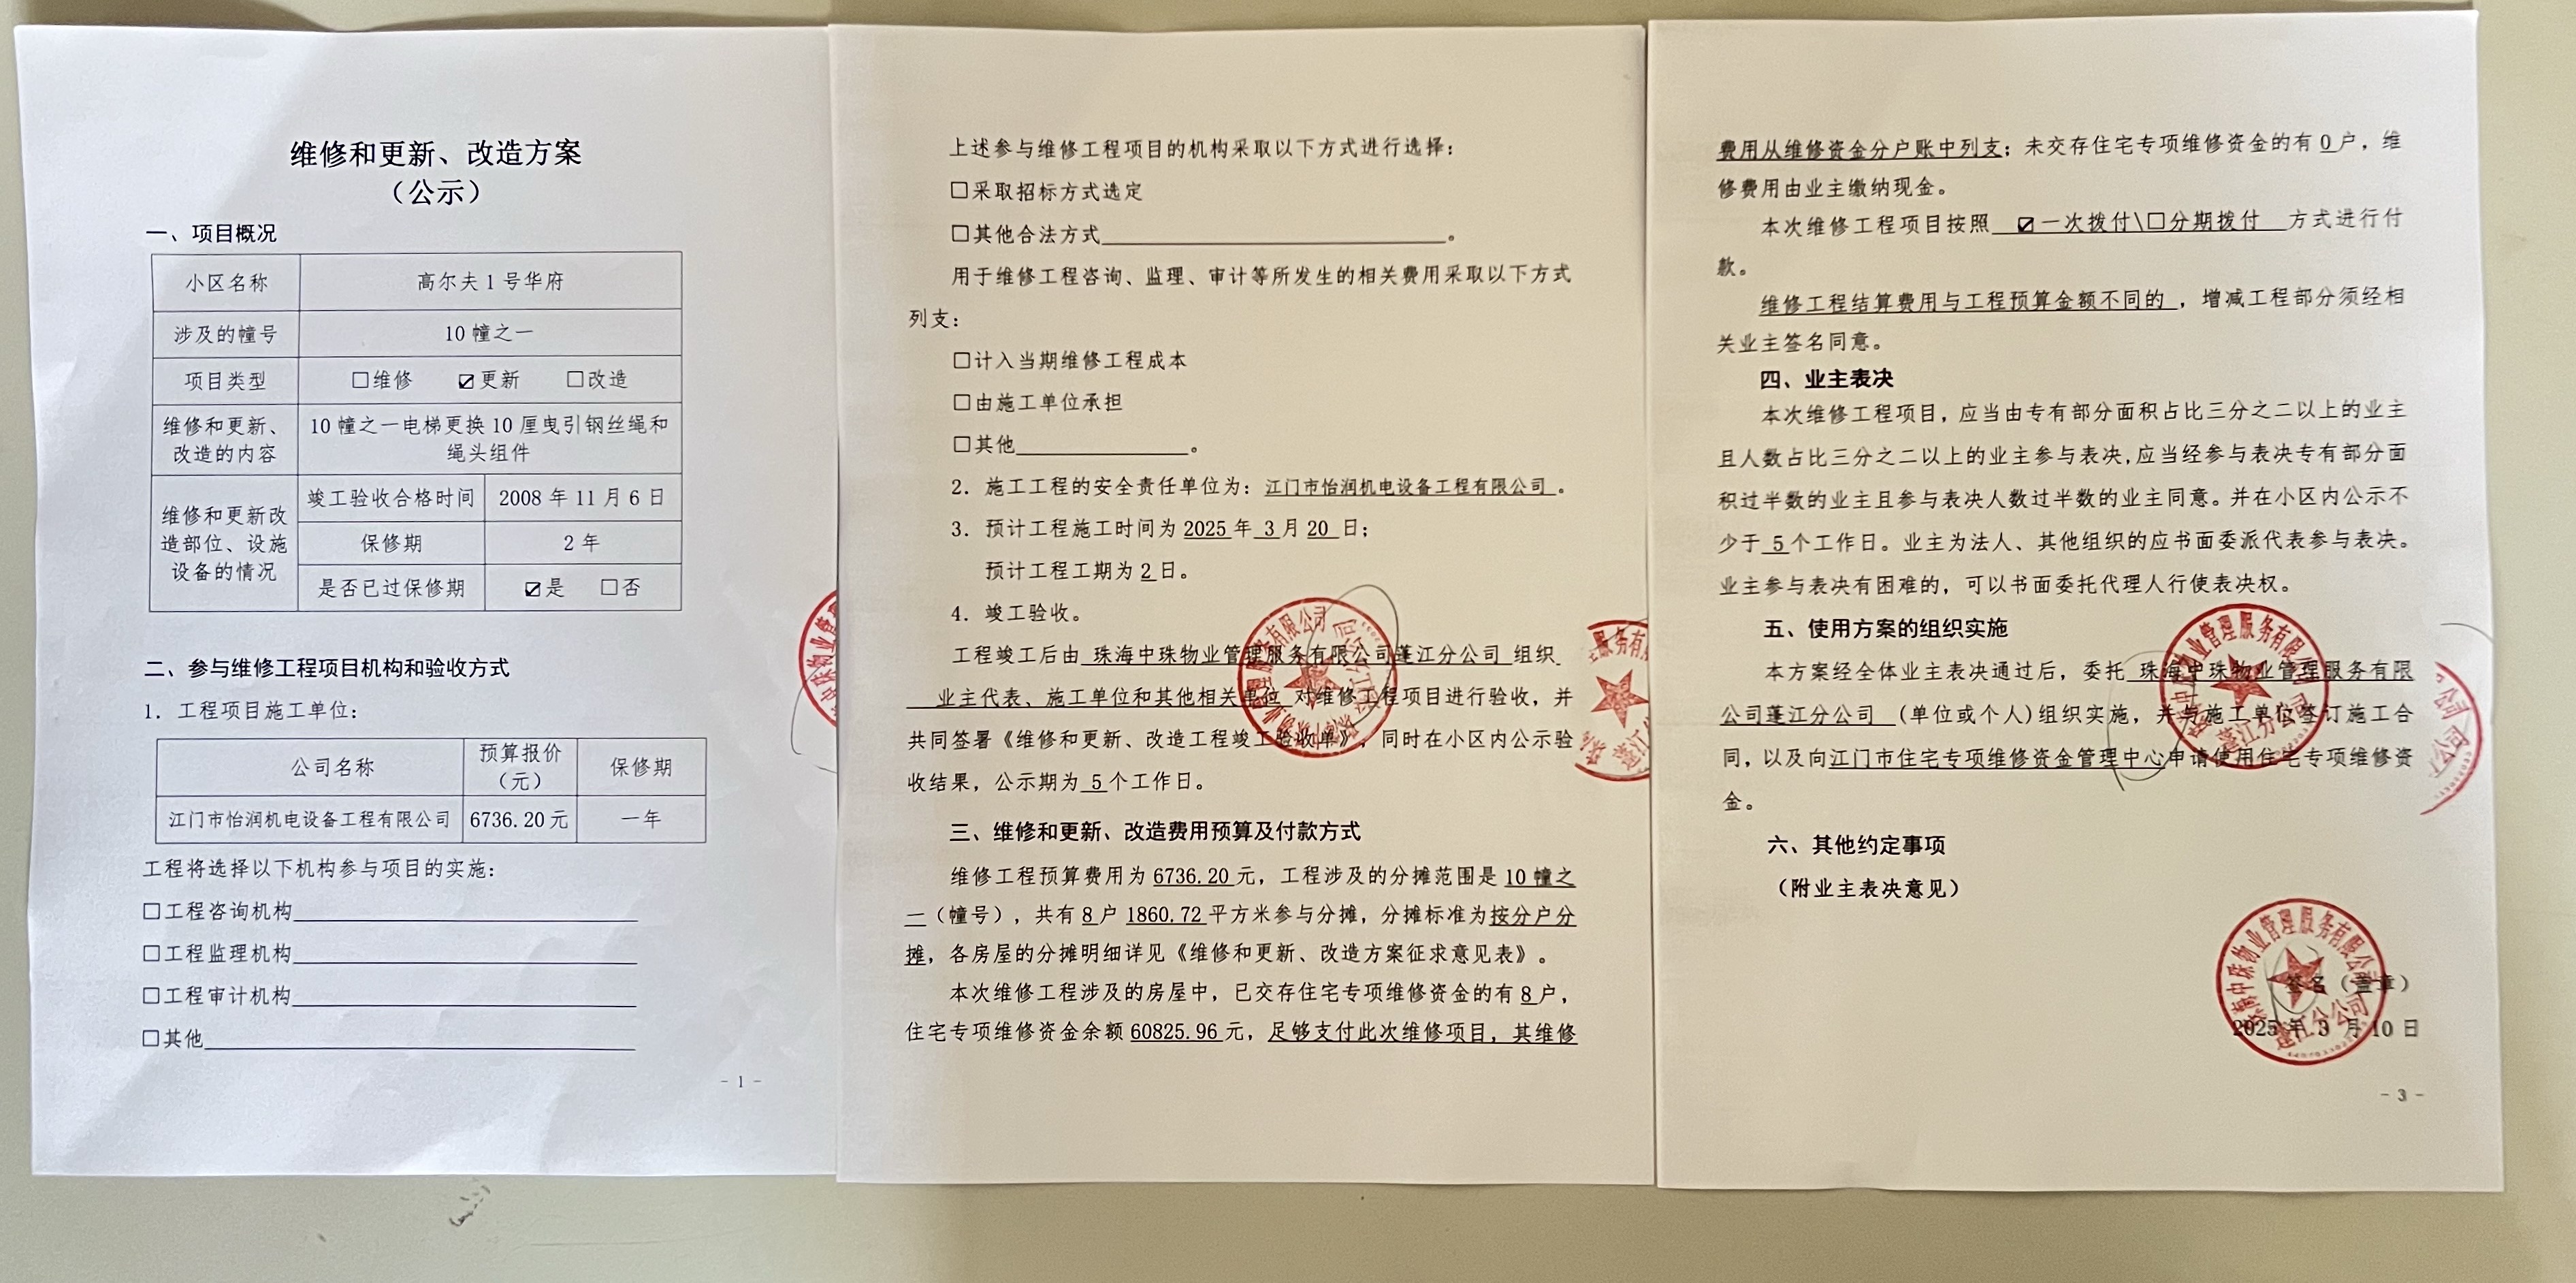 维修和更新、改造方案
（公示）
一、项目概况
小区名称 高尔夫1号华府
涉及的幢号 10幢之一
项目类型 ☐维修 ☑更新 ☐改造
维修和更新、改造的内容 10幢之一电梯更换10厘曳引钢丝绳和
绳头组件
维修和更新改
造部位、设施
设备的情况
竣工验收合格时间 2008年11月6日
保修期 2年
是否已过保修期 ☑是 ☐否
二、参与维修工程项目机构和验收方式
1. 工程项目施工单位：
公司名称 预算报价（元） 保修期
江门市怡润机电设备工程有限公司 6736.20元 一年
工程将选择以下机构参与项目的实施：
☐工程咨询机构
☐工程监理机构
☐工程审计机构
☐其他
- 1 -
上述参与维修工程项目的机构采取以下方式进行选择：
☐采取招标方式选定
☐其他合法方式。
用于维修工程咨询、监理、审计等所发生的相关费用采取以下方式
列支：
☐计入当期维修工程成本
☐由施工单位承担
☐其他。
2. 施工工程的安全责任单位为：江门市怡润机电设备工程有限公司。
3. 预计工程施工时间为2025年3月20日；
预计工程工期为2日。
4. 竣工验收。
工程竣工后由 珠海中珠物业管理服务有限公司蓬江分公司 组织
业主代表、施工单位和其他相关单位 对维修工程项目进行验收，并
共同签署《维修和更新、改造工程竣工验收单》，同时在小区内公示验
收结果，公示期为5个工作日。
三、维修和更新、改造费用预算及付款方式
维修工程预算费用为6736.20元，工程涉及的分摊范围是10幢之
一（幢号），共有8户1860.72平方米参与分摊，分摊标准为按分户分
摊，各房屋的分摊明细详见《维修和更新、改造方案征求意见表》。
本次维修工程涉及的房屋中，已交存住宅专项维修资金的有8户，
住宅专项维修资金余额60825.96元，足够支付此次维修项目，其维修
费用从维修资金分户账中列支；未交存住宅专项维修资金的有0户，维
修费用由业主缴纳现金。
本次维修工程项目按照 ☑一次拨付\☐分期拨付 方式进行付
款。
维修工程结算费用与工程预算金额不同的，增减工程部分须经相
关业主签名同意。
四、业主表决
本次维修工程项目，应当由专有部分面积占比三分之二以上的业主
且人数占比三分之二以上的业主参与表决,应当经参与表决专有部分面
积过半数的业主且参与表决人数过半数的业主同意。并在小区内公示不
少于5个工作日。业主为法人、其他组织的应书面委派代表参与表决。
业主参与表决有困难的，可以书面委托代理人行使表决权。
五、使用方案的组织实施
本方案经全体业主表决通过后，委托 珠海中珠物业管理服务有限
公司蓬江分公司 (单位或个人)组织实施，并与施工单位签订施工合
同，以及向江门市住宅专项维修资金管理中心申请使用住宅专项维修资
金。
六、其他约定事项
（附业主表决意见）
签名（盖章）
2025年3月10日
- 3 -
珠海中珠物业管理服务有限公司
蓬江分公司